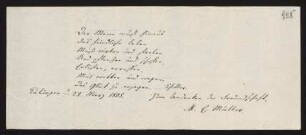 Der Mann muß hinaus
Ins feindliche Leben
Muß wirken und streben
Und pflanzen und schaffen
Erlisten, erraffen
Muß wetten und wagen,
Das Glück zu erjagen. Schiller.
Tübingen d. 28 März 18
Zum Andenken der Freundschaft
Müller